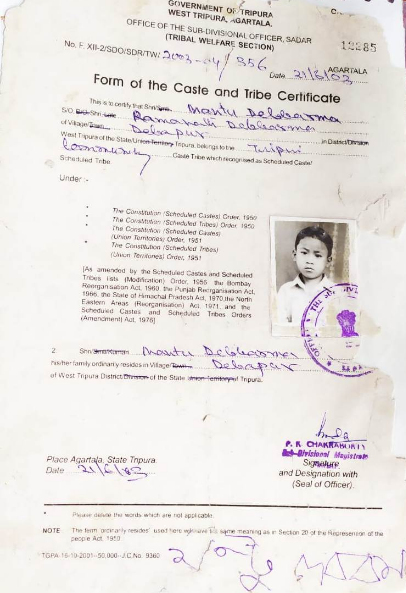 GOVERNMENT OF TRIPURA
WEST TRIPURA, AGARTALA.
OFFICE OF THE SUB-DIVISIONAL OFFICER, SADAR
(TRIBAL WELFARE SECTION)
No. F. XII-2/SDO/SDR/TW/ 2003-04/ 956
AGARTALA
Date 21/6/03
Form of the Caste and Tribe Certificate
This is to certify that Shri Mantu Debbarma
S/O, Shri Debbarma
of Village/Town Debapur in District/Division
West Tripura of the State/Union Territory Tripura, belongs to the Tripuri
Community Caste/Tribe which recognised as Scheduled Caste/
Scheduled Tribe
Under :-
The Constitution (Scheduled Castes) Order, 1950
The Constitution (Scheduled Tribes) Order, 1950
The Constitution (Scheduled Castes)
(Union Territories) Order, 1951
The Constitution (Scheduled Tribes)
(Union Territories) Order, 1951
[As amended by the Scheduled Castes and Scheduled
Tribes lists (Modification) Order, 1956 the Bombay
Reorganisation Act, 1960, the Punjab Reorganisation Act,
1966, the State of Himachal Pradesh Act, 1970, the North
Eastern Areas (Reorganisation) Act, 1971, and the
Scheduled Castes and Scheduled Tribes Orders
(Amendment) Act, 1976]
2. Shri Mantu Debbarma
his/her family ordinarily resides in Village/Town Debapur
of West Tripura District/Division of the State Union Territory of Tripura.
P. K. CHAKRABORTI
Sub-Divisional Magistrate
Place Agartala, State Tripura
Signature
Date
and Designation with
(Seal of Officer)
* Please delete the words which are not applicable.
NOTE The term ordinarily resides" used here will have the same meaning as in Section 20 of the Represention of the
people Act, 1950